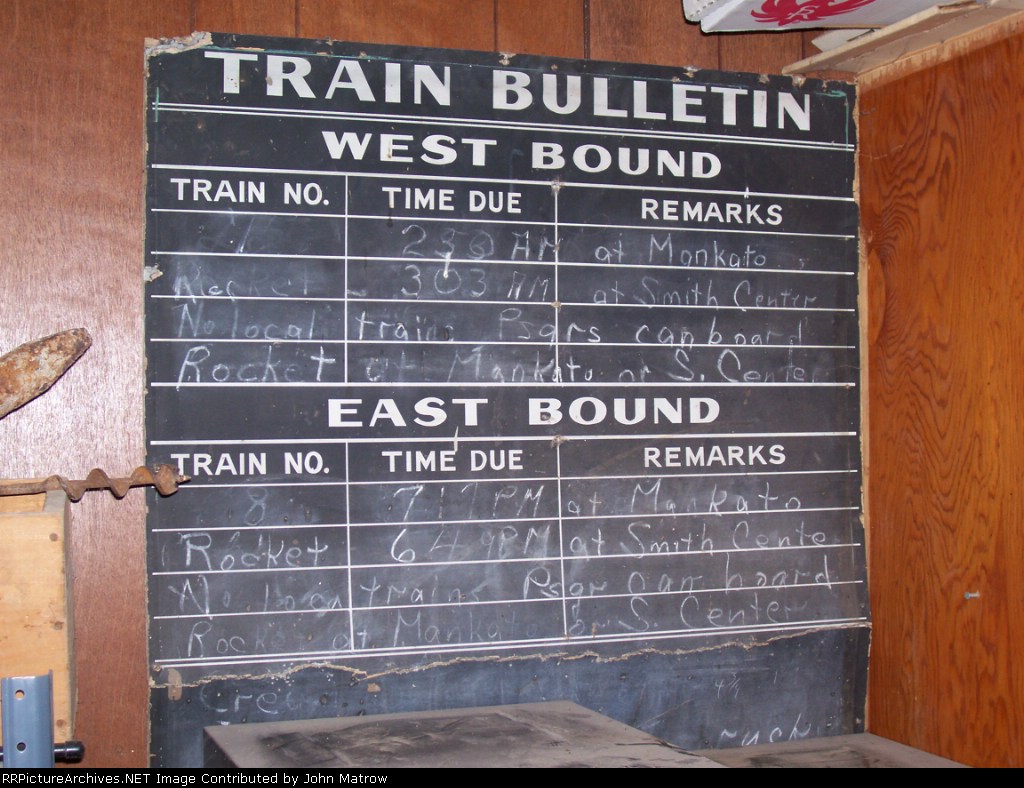 TRAIN BULLETIN
WEST BOUND
TRAIN NO. TIME DUE REMARKS
7 AM at Mankato
Rocket 303 AM at Smith Center
No local trains Psgrs can board
Rocket at Mankato or S. Center
EAST BOUND
TRAIN NO. TIME DUE REMARKS
8 717 PM at Mankato
Rocket 649 PM at Smith Cente
No local trains Psgr can board
Rocket at Mankato or S. Center
RRPictureArchives.NET Image Contributed by John Matrow